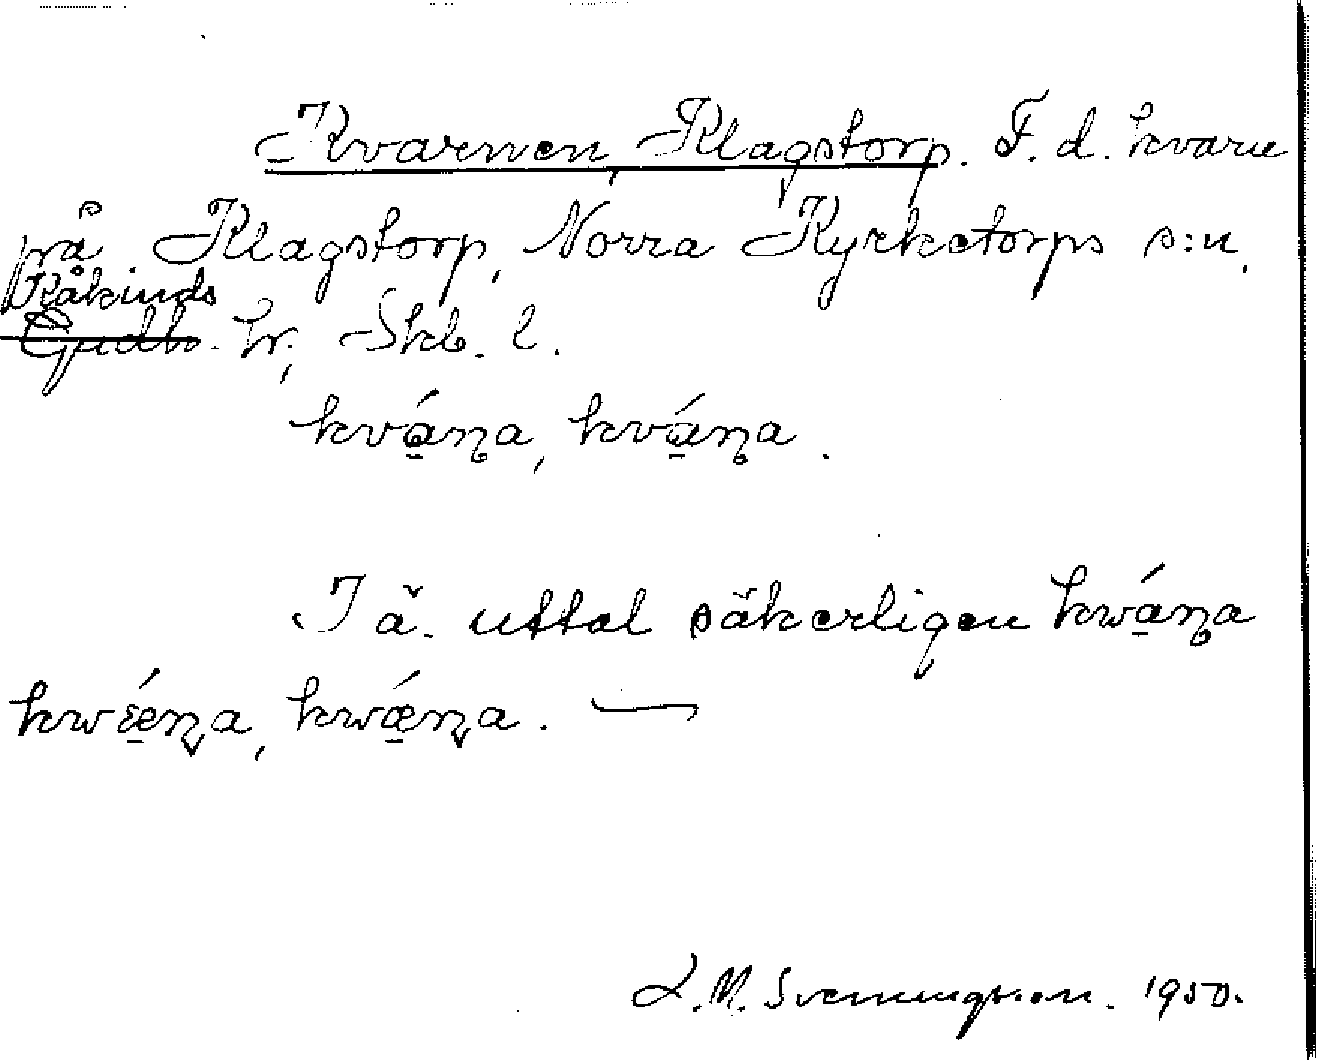 Kvarnen, Klagstorp. F. d. kvarn
på Klagstorp, Norra Kyrketorps s:n,
Kåkinds
Gudh. hr, Skb. l.
kvá̱ɳa, kvá̱ɳa.
I ä. uttal säkerligen kwá̱ɳa
kwǽ̱ɳa, kwǽ̱ɳa. —
L. M. Svenungsson. 1950.